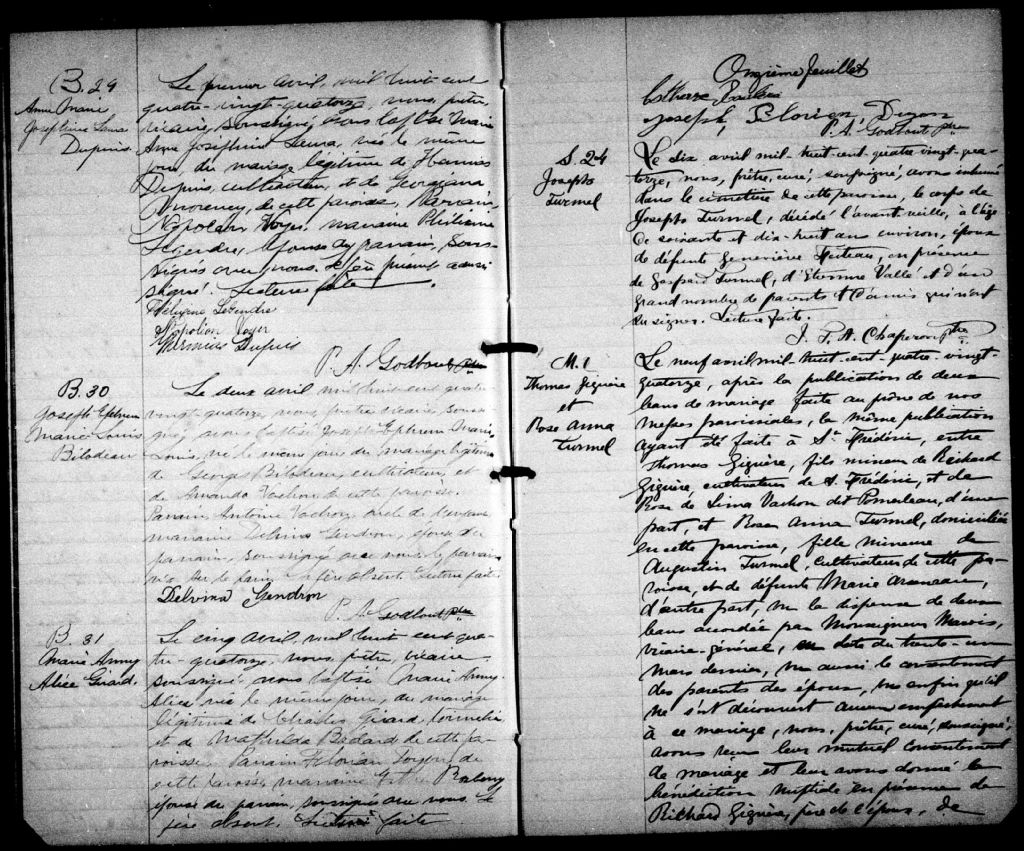 B. 29
Anne Marie
Josephine Lena
Dupuis
Le premier avril, mil huit-cent
quatre-vingt-quatorze, nous, prêtre,
vicaire, soussigné, avons baptisé Marie
Anne Josephine Lena, née le même
jour du mariage légitime de
Dupuis, cultivateur, et de Georgiana
de cette paroisse. Parrain,
Napoléon Voyer. marraine Philomène
Legendre, épouse du parrain, sous-
signés avec nous. Le père présent a aussi
signé. Lecture faite.
Legendre
Napoléon Voyer
Dupuis
P. A. Godbout Ptre
B. 30
Joseph Ephrem
Marie Louis
Bilodeau
Le deux avril mil huit cent quatre
vingt-quatorze, nous, prêtre vicaire, sous-
signé, avons baptisé Joseph Ephrem Marie
Louis, né le même jour du mariage légitime
de George Bilodeau, cultivateur, et
de Amanda Vachon de cette paroisse.
Parrain Antoine Vachon, oncle de
marraine Delvina Gendron, épouse du
parrain, soussignée avec nous, le parrain
n'a su le faire. Le père absent. Lecture faite.
Delvina Gendron
P. A. Godbout Ptre
B. 31
Marie Anny
Alice Girard.
Le cinq avril, mil huit cent qua-
tre-quatorze, nous, prêtre, vicaire
soussigné, avons baptisé Marie Anny
Alice née le même jour, du mariage
légitime de Charles Girard,
et de Mathilda Bédard de cette pa-
roisse. Parrain Florian
cette paroisse, marraine
épouse du parrain, soussignés avec nous. Le
père absent. Lecture faite
Onzième feuillet
Joseph, Florian, Dizon
P. A. Godbout Ptre
S. 24
Joseph
Turmel
Le dix avril mil-huit-cent-quatre vingt-qua-
torze, nous, prêtre, curé, soussigné, avons inhumé
dans le cimetière de cette paroisse, le corps de
Joseph Turmel, décédé l'avant veille, à l'âge
de soixante et dix-huit ans environ, époux
de défunte Geneviève Ferteau, en présence
de Gaspard Turmel, d'Etienne Vallé et d'un
grand nombre de parents et d'amis qui n'ont
su signer. Lecture faite.
J. T. A. Chaperon Ptre
M. 1
Thomas Giguère
et
Rose Anna
Turmel
Le neuf avril mil-huit-cent-quatre-vingt-
quatorze, après la publication de deux
bans de mariage faite au prône de nos
messes paroissiales, la même publication
ayant été faite à St Frédéric, entre
Thomas Giguère, fils mineur de Richard
Giguère, cultivateur de St Frédéric, et de
Rose de Lima Vachon dit Pomerleau, d'une
part, et Rose Anna Turmel, domiciliée
en cette paroisse, fille mineure de
Augustin Turmel, cultivateur de cette pa-
roisse, et de défunte Marie
d'autre part, vu la dispense de deux
bans accordée par Monseigneur Marois,
vicaire-général, en date du trente-un
Mars dernier, vu aussi le consentement
des parents des époux, vu enfin qu'il
ne s'est découvert aucun empêchement
à ce mariage, nous, prêtre, curé, soussigné,
avons reçu leur mutuel consentement
de mariage et leur avons donné la
bénédiction nuptiale en présence de
Richard Giguère, père de l'époux, de